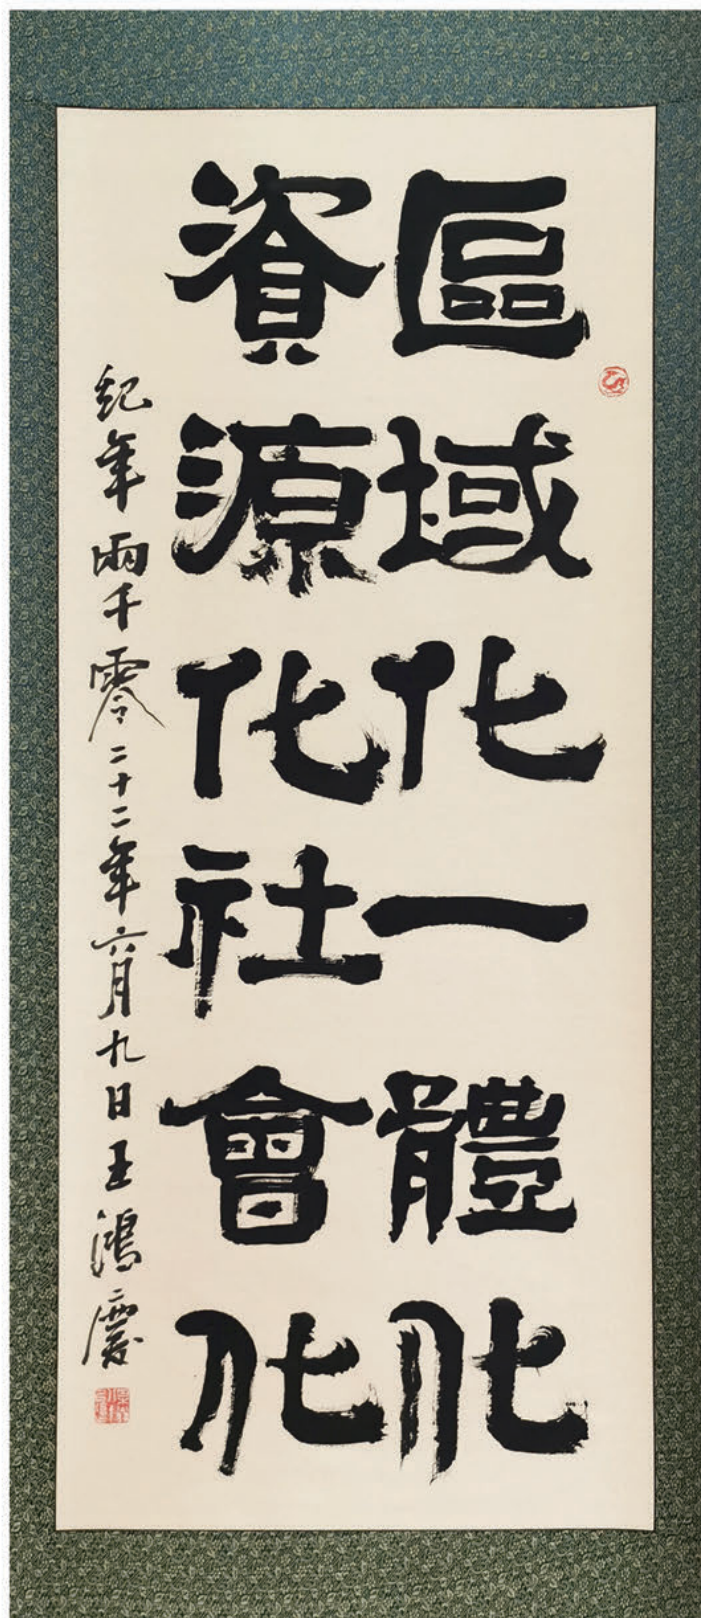 區域化一體化
資源化社會化
紀年兩千零二十二年六月九日王鴻慶